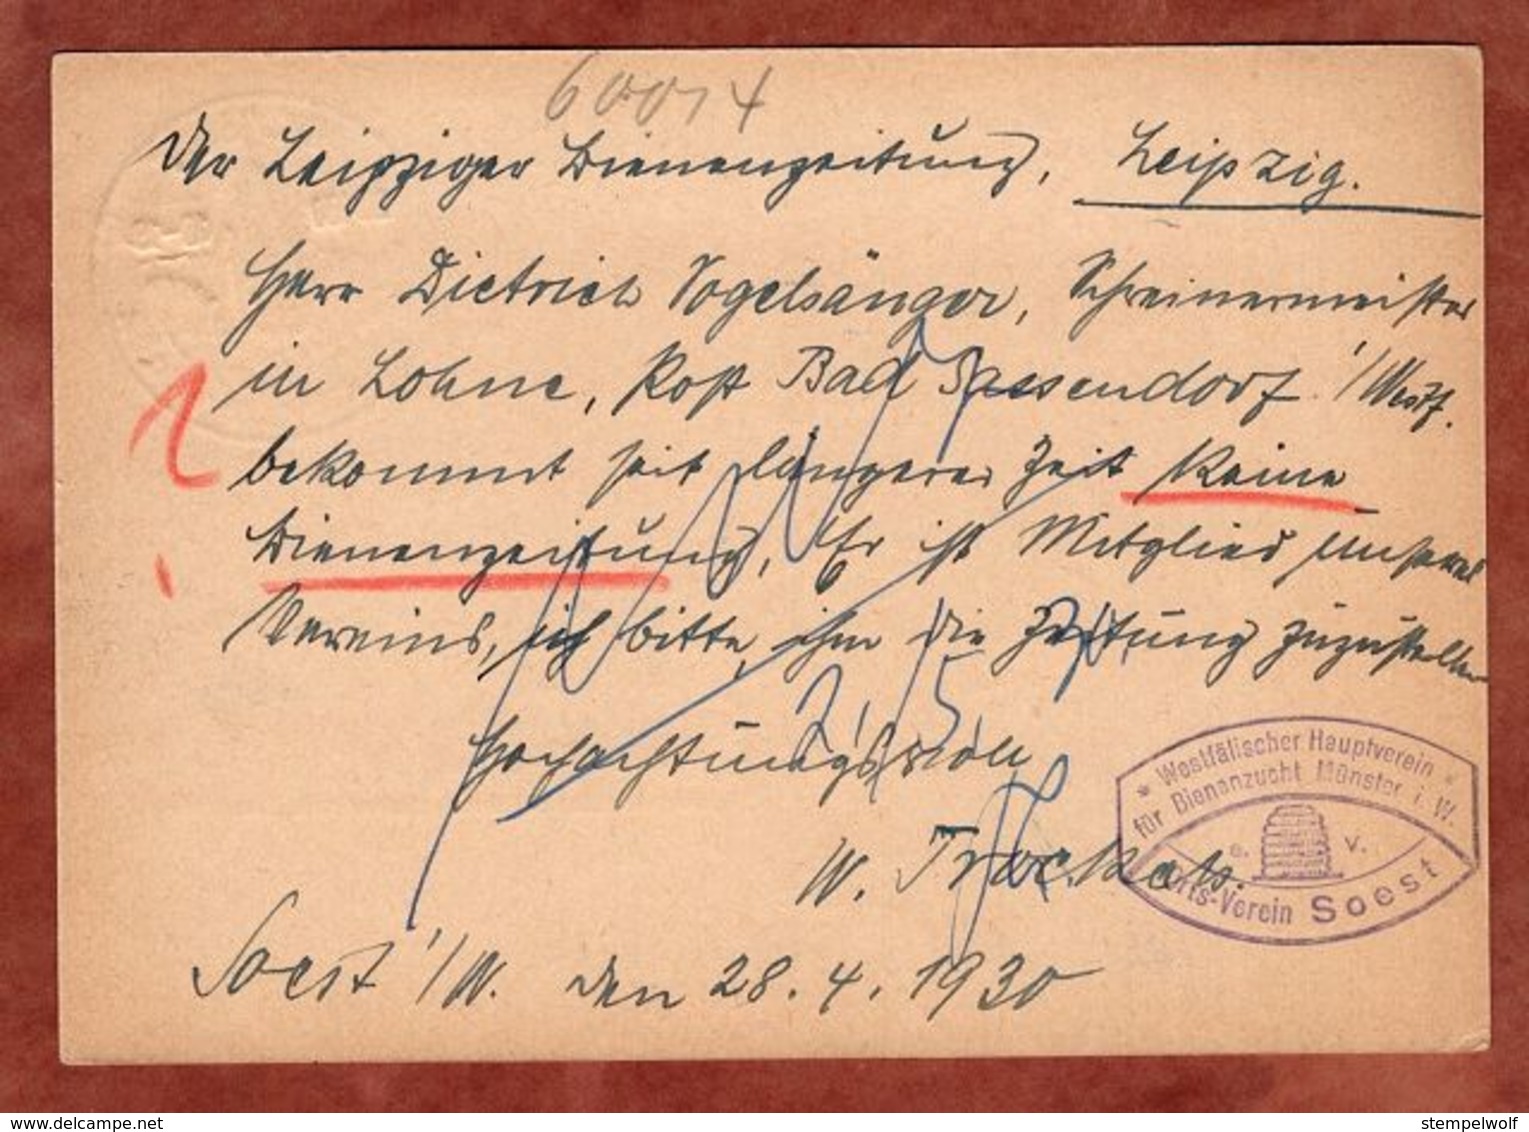 60014
Der Leipziger Bienenzeitung, Leipzig.
Herr Dietrich Vogelsänger, Schreinermeister
in Lohne, Post Bad Sassendorf i/Westf.
bekommt seit längerer Zeit keine
Bienenzeitung, Er ist Mitglied unseres
Vereins, ich bitte, ihm die Zeitung zuzustellen
Hochachtungsvoll
W.
Soest i/W. den 28.4.1930
* Westfälischer Hauptverein *
für Bienenzucht Münster i. W.
e. V.
Orts-Verein Soest
delcampe.net
stempelwolf